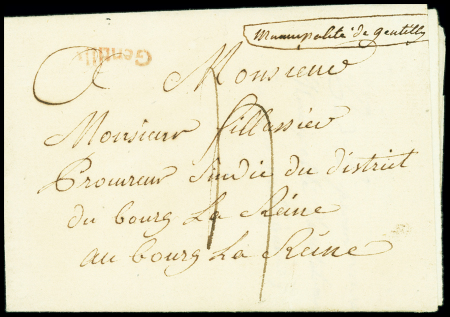 Municipalité de Gentilly
Gentilly
A Monsieur
Monsieur fillassier
Procureur Sindic du district
du bourg La Reine
au bourg La Reine